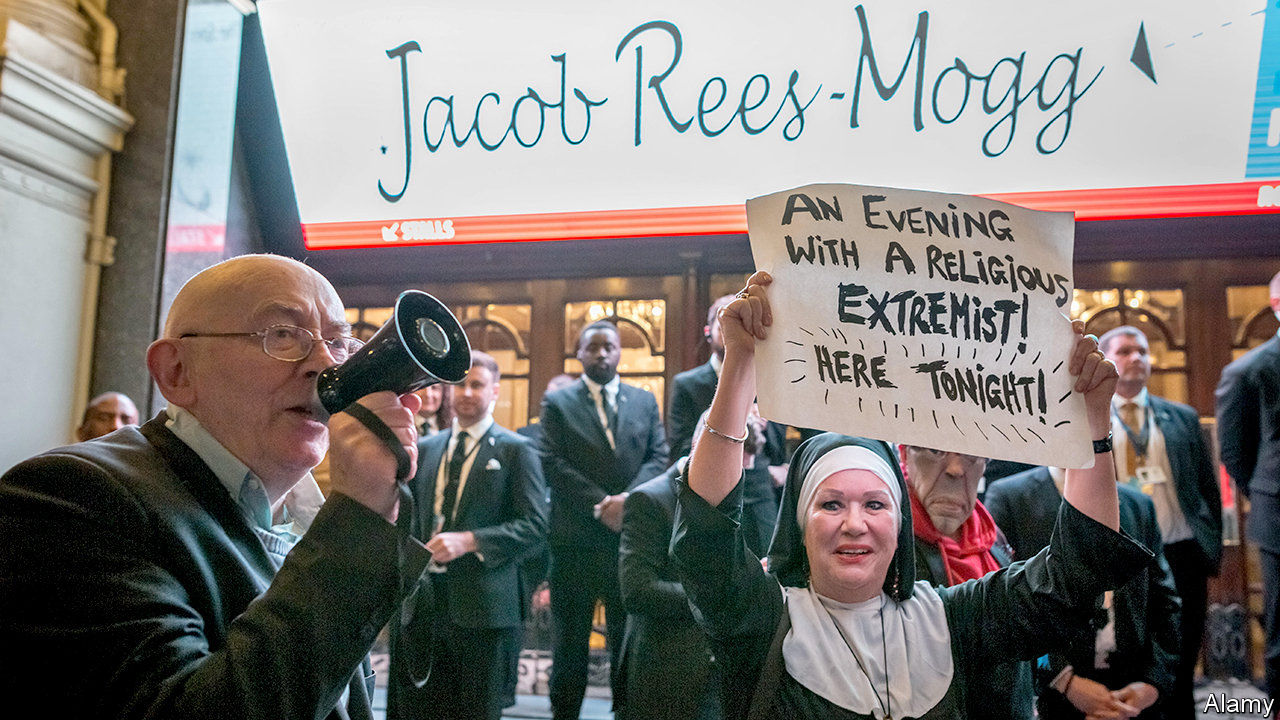 Jacob Rees-Mogg
STALLS
AN EVENING
WITH A RELIGIOUS
EXTREMIST!
HERE TONIGHT!
Alamy